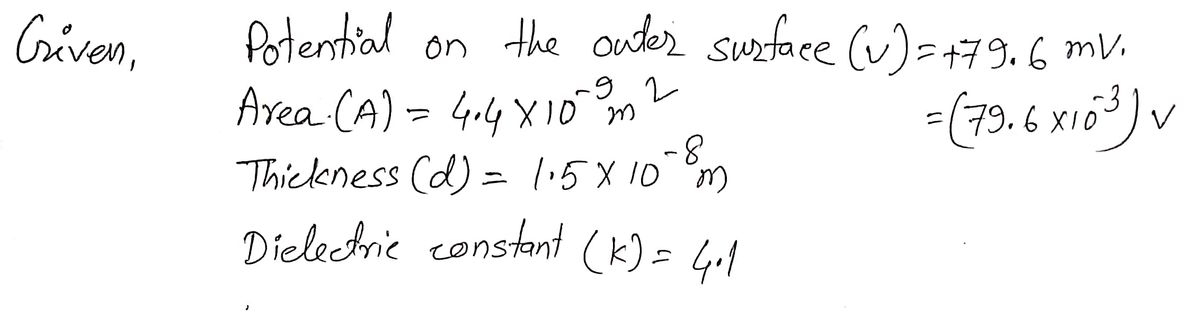 Given, Potential on the outer surface (V) = +79.6 mV.
Area (A) = 4.4 X 10⁻⁹ m² = (79.6 x 10⁻³) V
Thickness (d) = 1.5 X 10⁻⁸ m
Dielectric constant (K) = 4.1